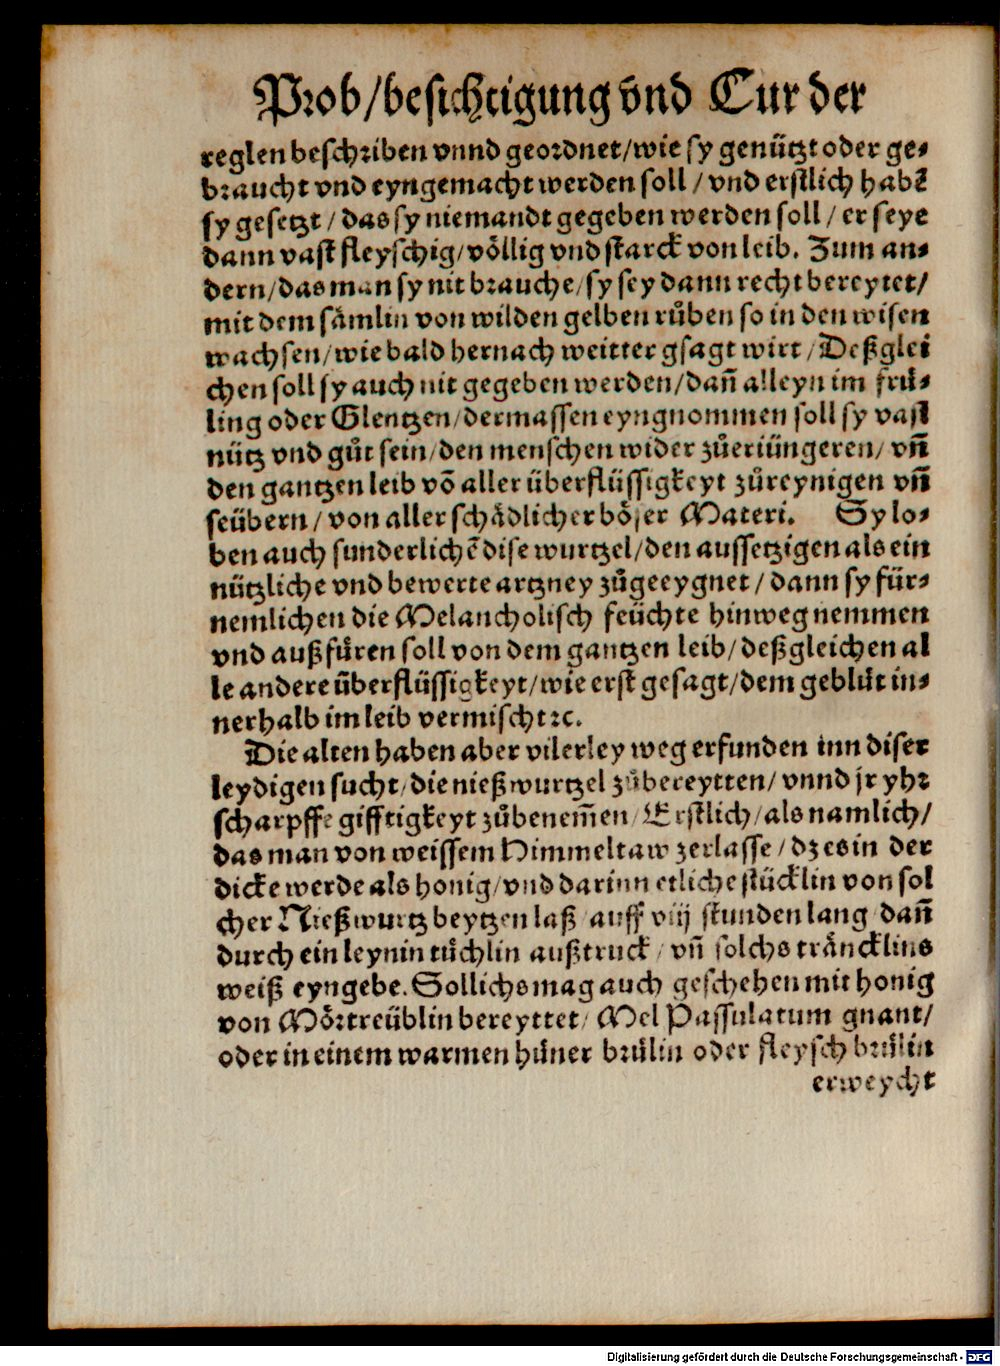 Prob/besichtigung vnd Cur der
reglen beschriben vnnd geordnet/wie sy genützt oder ge⸗
braucht vnd eyngemacht werden soll / vnd erstlich habẽ
sy gesetzt / das sy niemandt gegeben werden soll / er seye
dann vast fleyschig/völlig vnd starck von leib. Zum an⸗
dern/das man sy nit brauche/sy sey dann recht bereytet/
mit dem sämlin von wilden gelben růben so in den wisen
wachsen/wie bald hernach weitter gsagt wirt /Deßglei
chen soll sy auch nit gegeben werden/dañ alleyn im frů⸗
ling oder Glentzen/dermassen eyngnommen soll sy vast
nütz vnd gůt sein/den menschen wider zůeriüngeren/ vñ
den gantzen leib võ aller überflüssigkeyt zůreynigen vñ
seübern/von aller schädlicher böser Materi. Sy lo⸗
ben auch sunderlichẽ dise wurtzel/den aussetzigen als ein
nützliche vnd bewerte artzney zůgeeygnet / dann sy für⸗
nemlichen die Melancholisch feüchte hinweg nemmen
vnd außfůren soll von dem gantzen leib/deßgleichen al
le andere überflüssigkeyt/wie erst gesagt/dem geblůt in⸗
nerhalb im leib vermischt ꝛc.
Die alten haben aber vilerley weg erfunden inn diser
leydigen sucht/die nießwurtzel zůbereytten/ vnnd jr yhr
scharpffe gifftigkeyt zůbenem̃en/Erstlich/als namlich/
das man von weissem Himmeltaw zerlasse/dz es in der
dicke werde als honig/vnd darinn etliche stücklin von sol
cher Nießwurtz beytzen laß auff viij stunden lang dañ
durch ein leynin tůchlin außtruck / vñ solchs träncklins
weiß eyngebe. Sollichs mag auch geschehen mit honig
von Mörtreüblin bereyttet/ Mel Passulatum gnant/
oder in einem warmen hůner brůlin oder fleysch brůlin
erweycht
Digitalisierung gefördert durch die Deutsche Forschungsgemeinschaft - DFG